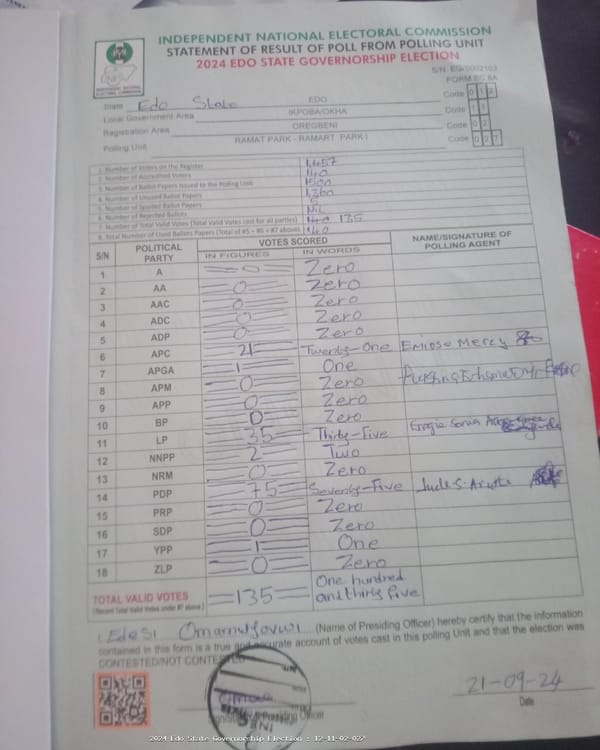 INDEPENDENT NATIONAL ELECTORAL COMMISSION
STATEMENT OF RESULT OF POLL FROM POLLING UNIT
2024 EDO STATE GOVERNORSHIP ELECTION
INDEPENDENT NATIONAL ELECTORAL COMMISSION
FORM EC 8A
State Edo State EDO Code 0 1 2
Local Government Area IKPOBA/OKHA Code 1 1
Registration Area OREGBENI Code 0 2
Polling Unit RAMAT PARK - RAMART PARK I Code 0 2 7
1. Number of Voters on the Register 1,457
2. Number of Accredited Voters 140
3. Number of Ballot Papers Issued to the Polling Unit 1500
4. Number of Unused Ballot Papers 1,360
5. Number of Spoiled Ballot Papers 5
6. Number of Rejected Ballots Nil
7. Number of Total Valid Votes (Total Valid Votes cast for all parties) 140 135
8. Total Number of Used Ballots Papers (Total of #5 + #6 + #7 above) 140
S/N POLITICAL PARTY VOTES SCORED NAME/SIGNATURE OF POLLING AGENT
IN FIGURES IN WORDS
1 A 0 Zero
2 AA 0 Zero
3 AAC 0 Zero
4 ADC 0 Zero
5 ADP 0 Zero
6 APC 21 Twenty-One Mercy
7 APGA 1 One
8 APM 0 Zero
9 APP 0 Zero
10 BP 0 Zero
11 LP 35 Thirty-Five Sonia
12 NNPP 2 Two
13 NRM 0 Zero
14 PDP 75 Seventy-Five Jude S.
15 PRP 0 Zero
16 SDP 0 Zero
17 YPP 1 One
18 ZLP 0 Zero
TOTAL VALID VOTES 135 One hundred and thirty five
(Record Total Valid Votes under #7 above)
I, Edesi (Name of Presiding Officer) hereby certify that the information
contained in this form is a true and accurate account of votes cast in this polling Unit and that the election was
CONTESTED/NOT CONTESTED
21-09-24
Presiding Officer Date
2024 Edo State Governorship Election : 12-11-02-027